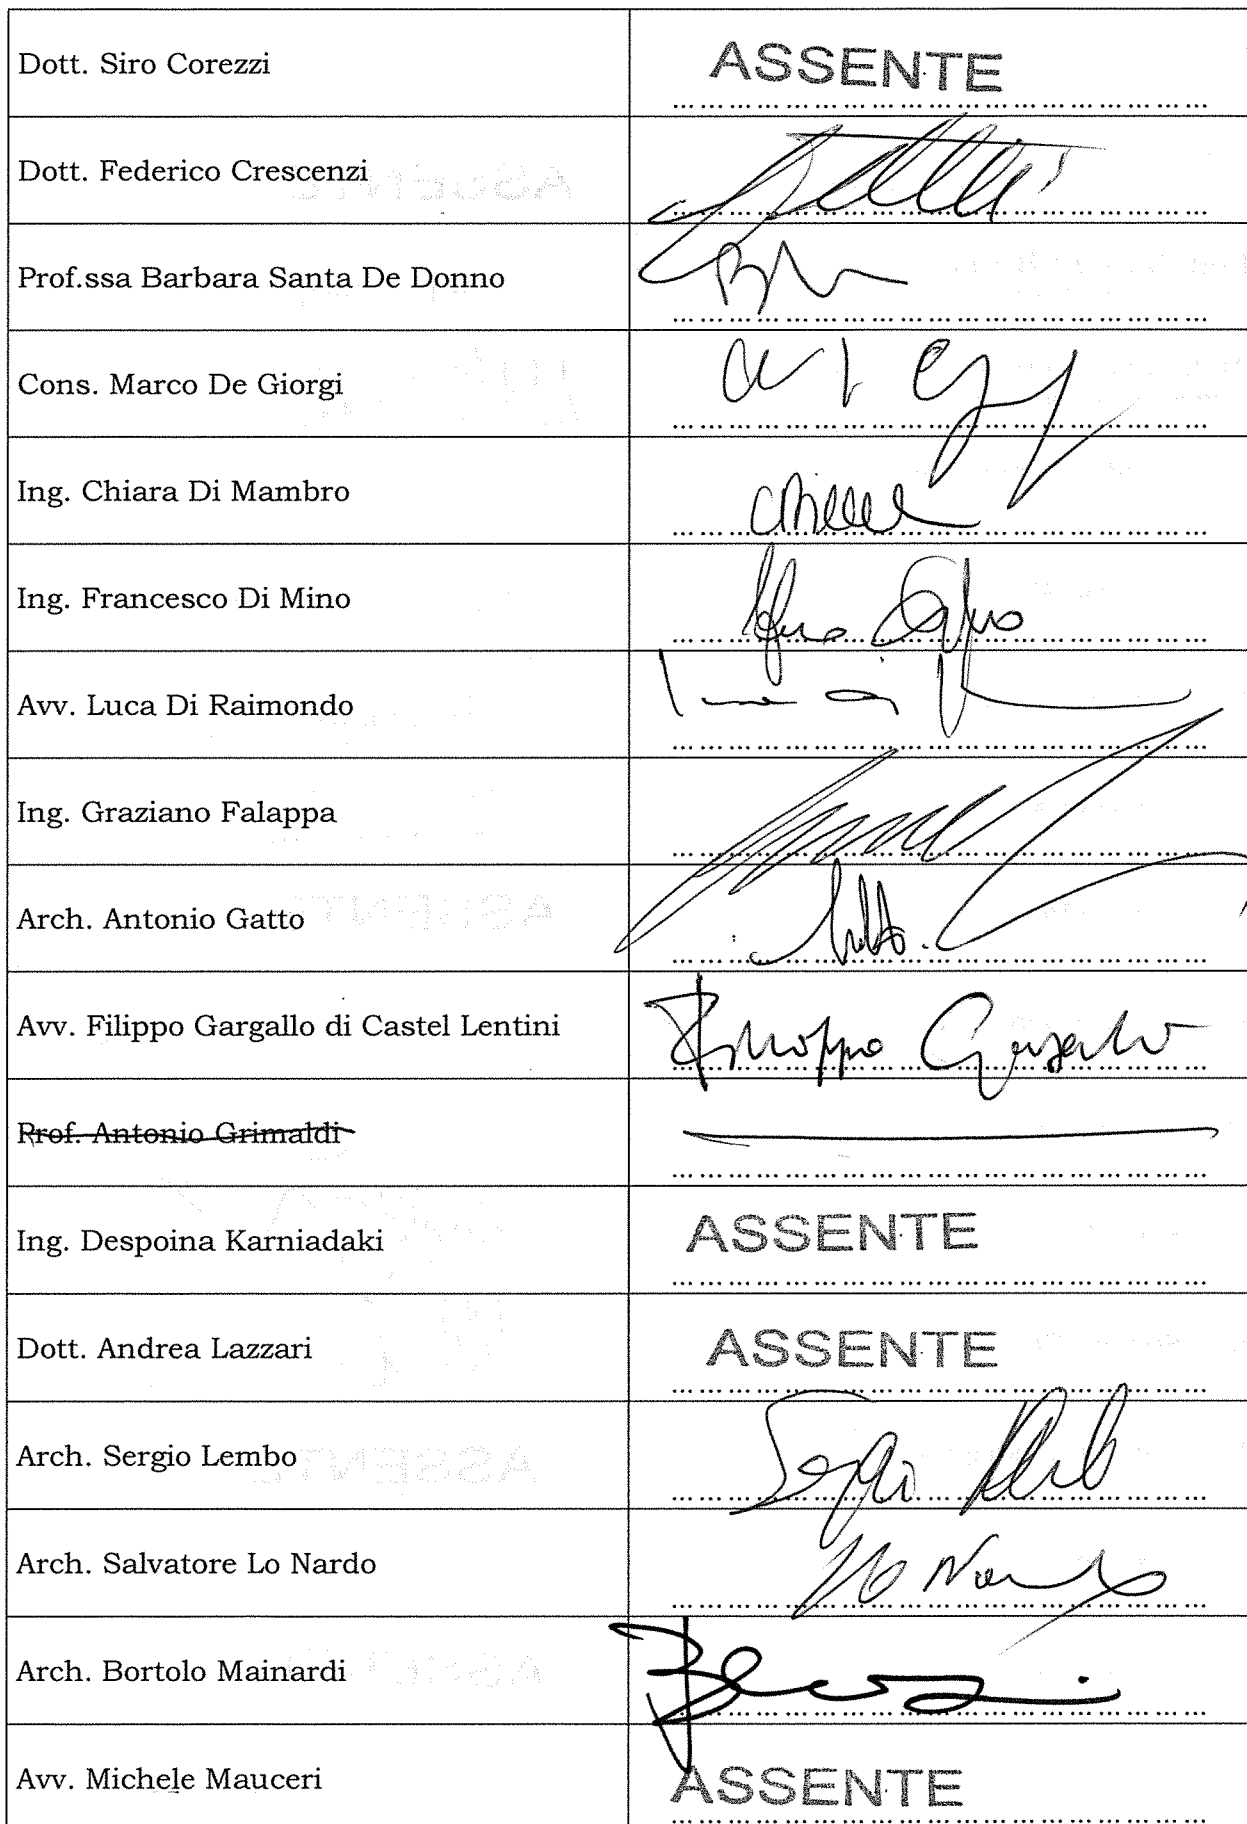 Dott. Siro Corezzi ASSENTE
Dott. Federico Crescenzi
Prof.ssa Barbara Santa De Donno
Cons. Marco De Giorgi
Ing. Chiara Di Mambro
Ing. Francesco Di Mino
Avv. Luca Di Raimondo
Ing. Graziano Falappa
Arch. Antonio Gatto
Avv. Filippo Gargallo di Castel Lentini Filippo Gargallo
Prof. Antonio Grimaldi
Ing. Despoina Karniadaki ASSENTE
Dott. Andrea Lazzari ASSENTE
Arch. Sergio Lembo Sergio
Arch. Salvatore Lo Nardo Lo Nardo
Arch. Bortolo Mainardi
Avv. Michele Mauceri ASSENTE